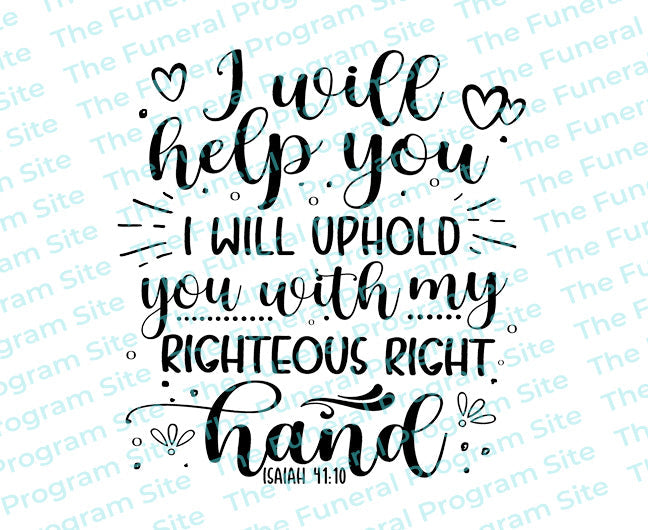 I will
help you
I WILL UPHOLD
you with my
RIGHTEOUS RIGHT
hand
ISAIAH 41:10
The Funeral Program Site